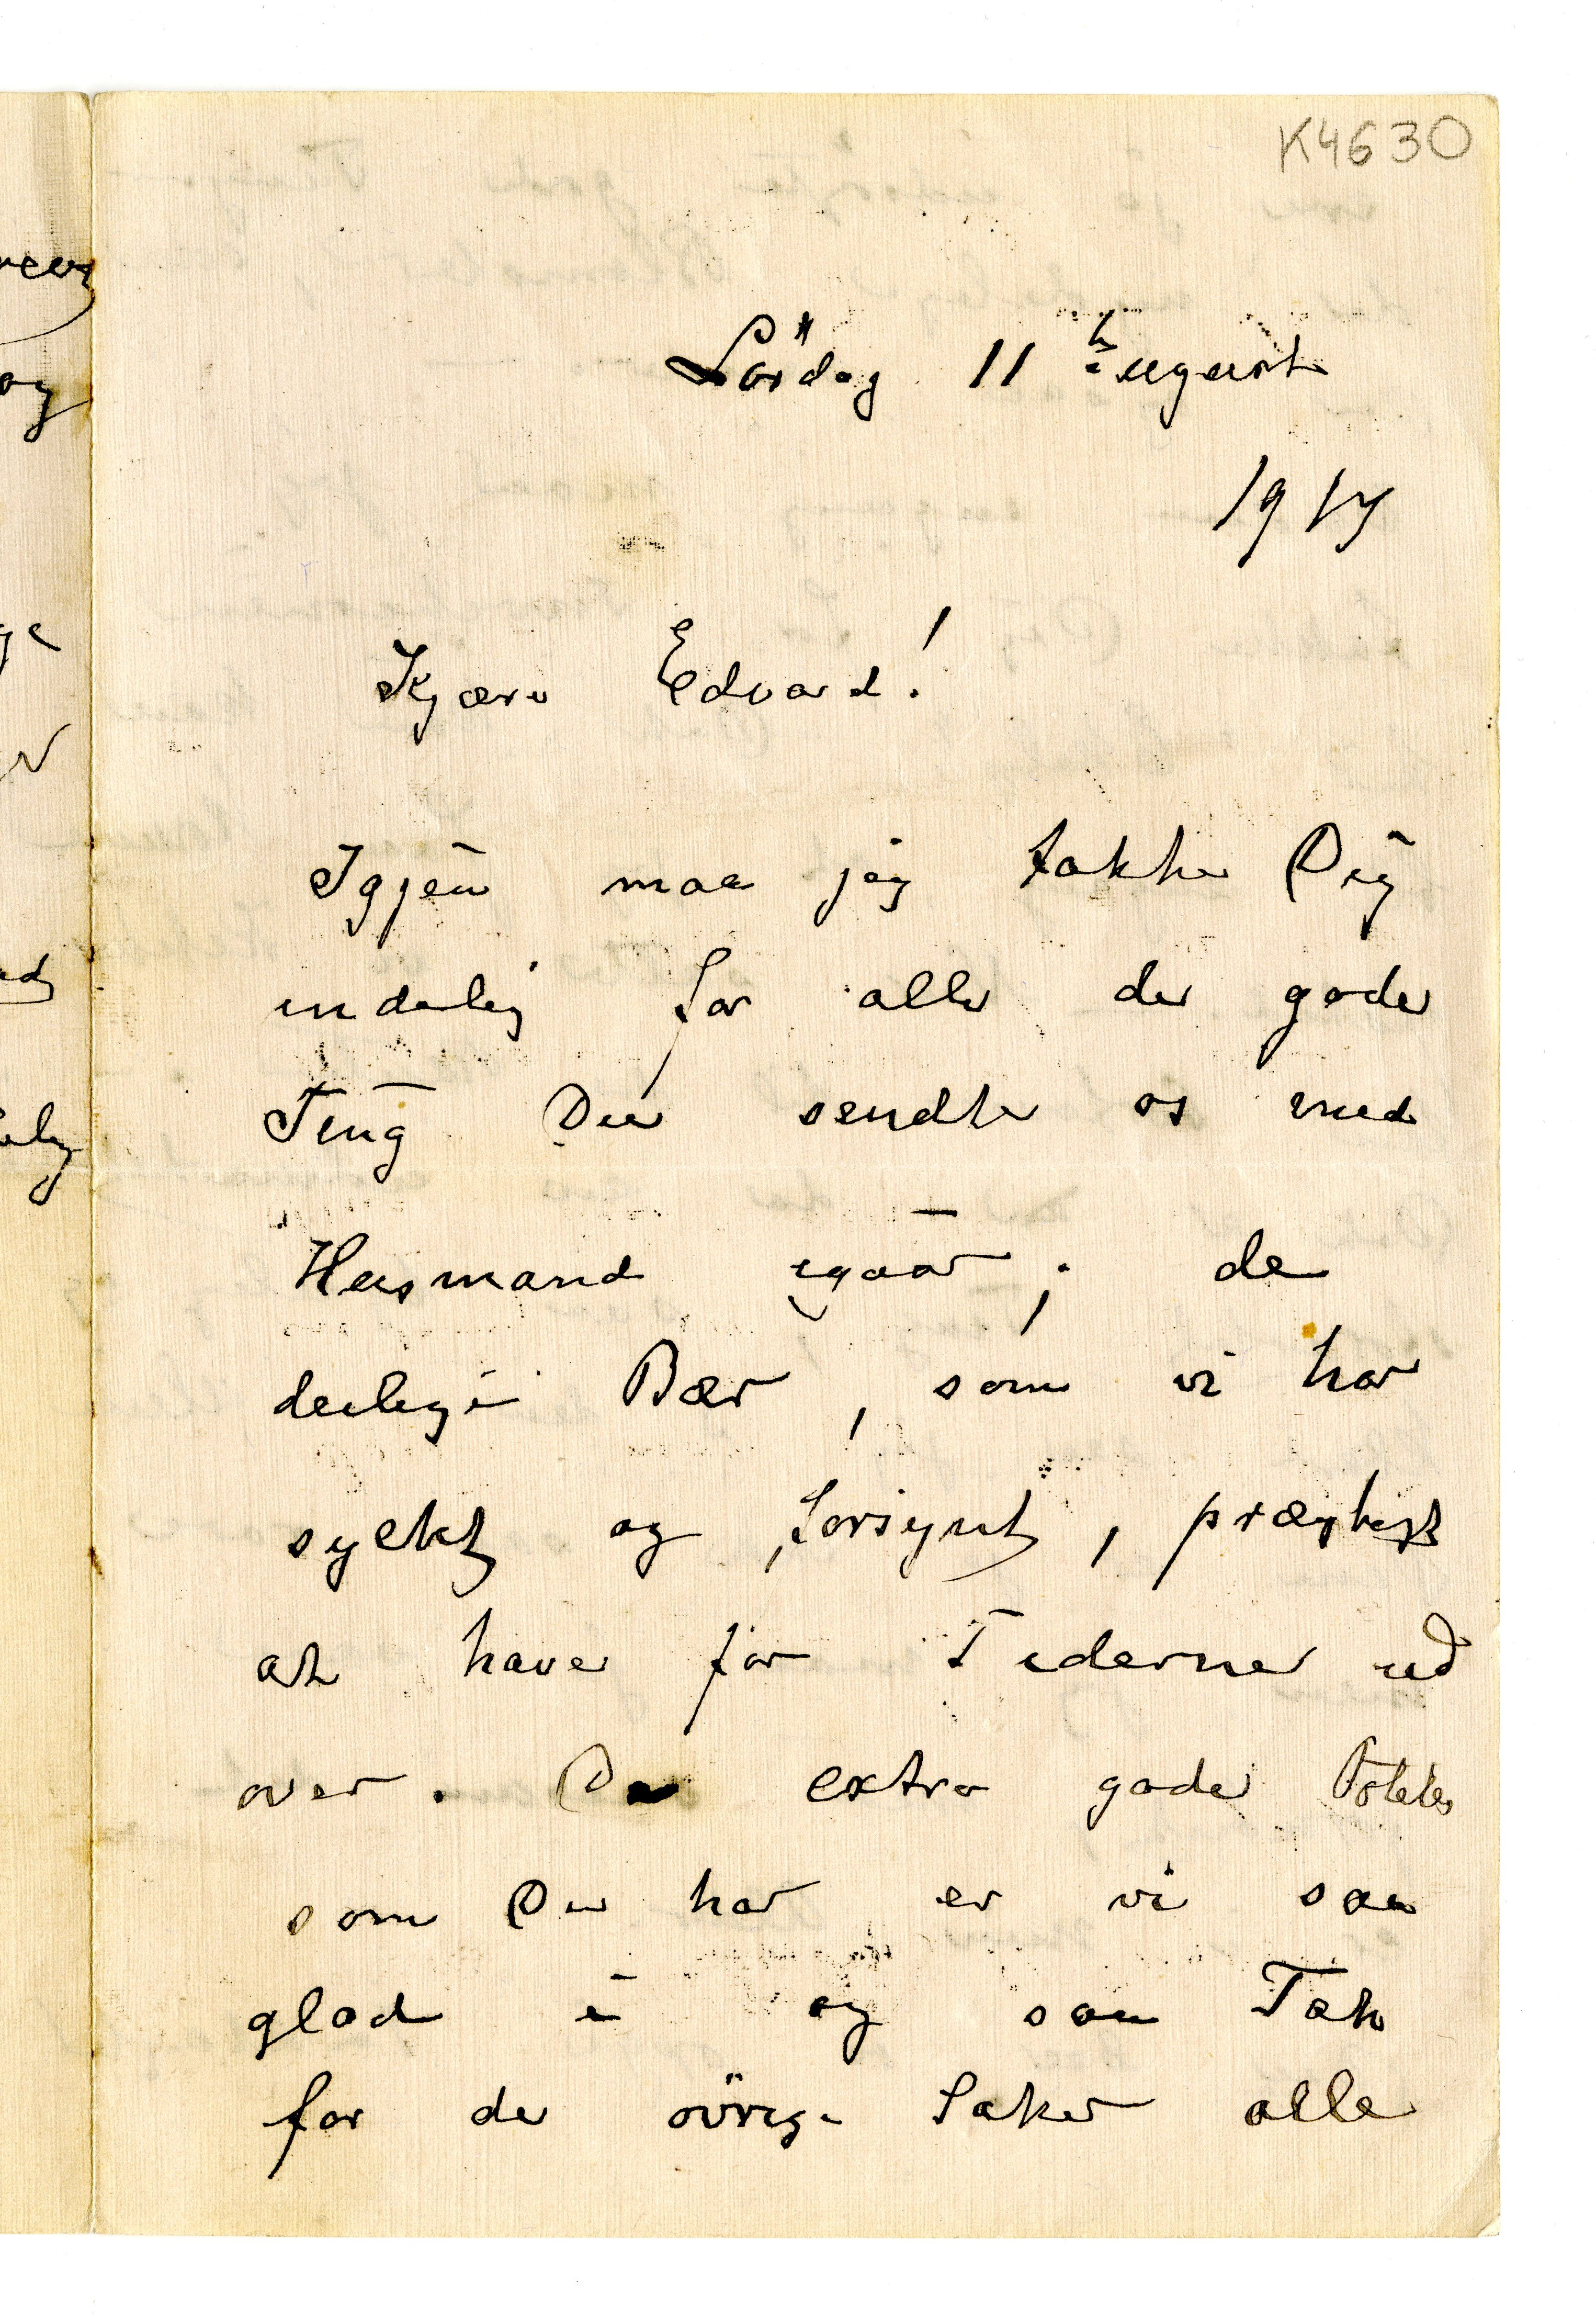 K4630
Lördag 11 August
1917
Kjære Edvard!
Igjen maa jeg takke Dig
inderlig for alle de gode
Ting Du sendte os med
Husmand igaar; de
deilige Bær, som vi har
syltet og forsynt, prægtigt
at have for Tiderne ud
over. De extra gode Poteter
som Du har er vi saa
glad i og saa Tak
for de övrige Saker alle
og